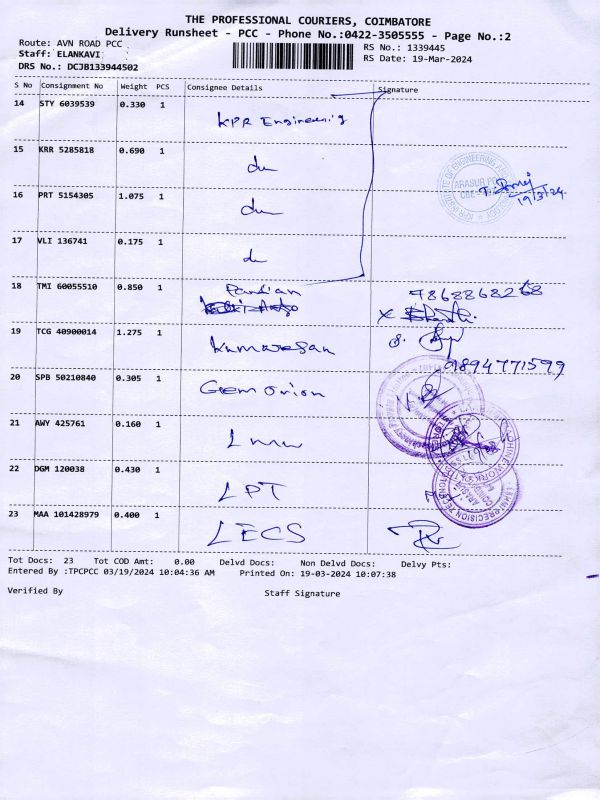 THE PROFESSIONAL COURIERS, COIMBATORE
Delivery Runsheet - PCC - Phone No.:0422-3505555 - Page No.:2
Route: AVN ROAD PCC
RS No.: 1339445
Staff: ELANKAVI
RS Date: 19-Mar-2024
DRS No.: DCJB133944502
S No Consignment No Weight PCS Consignee Details Signature
14 STY 6039539 0.330 1 KPR Engineering
15 KRR 5285818 0.690 1 du
16 PRT 5154305 1.075 1 du
19/3/24
17 VLI 136741 0.175 1 du
18 TMI 60055510 0.850 1 Pandian
19 TCG 40900014 1.275 1 Kumaresan
9894771599
20 SPB 50210840 0.305 1 Gem orion
21 AWY 425761 0.160 1 Lmw
22 DGM 120038 0.430 1 LPT
23 MAA 101428979 0.400 1 LECS
Tot Docs: 23 Tot COD Amt: 0.00 Delvd Docs: Non Delvd Docs: Delvy Pts:
Entered By :TPCPCC 03/19/2024 10:04:36 AM Printed On: 19-03-2024 10:07:38
Verified By Staff Signature